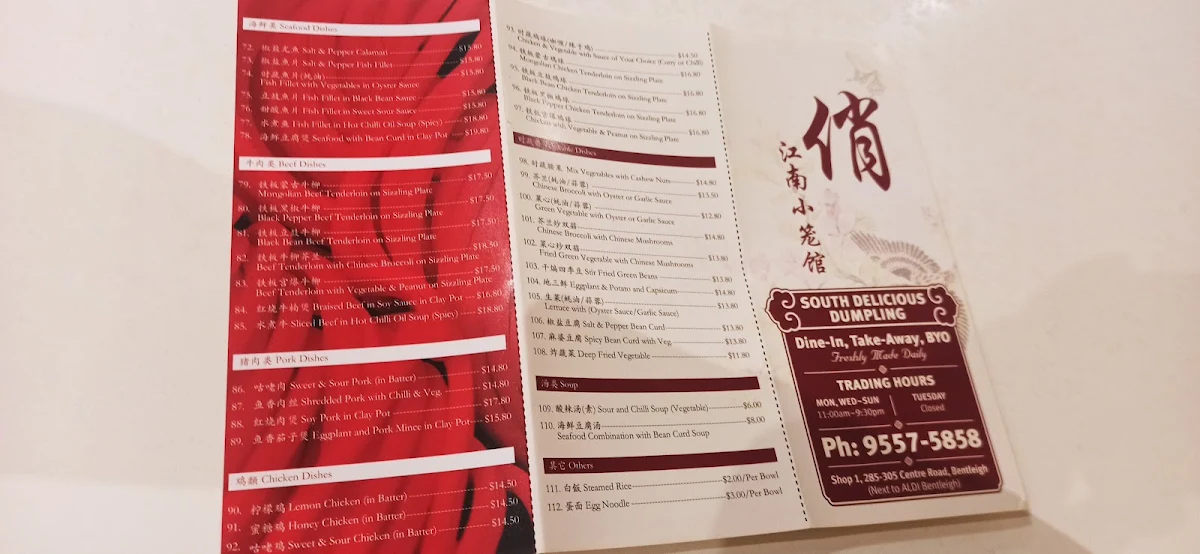 海鲜类 Seafood Dishes
72. 椒盐尤鱼 Salt & Pepper Calamari $15.80
73. 椒盐鱼片 Salt & Pepper Fish Fillet $15.80
74. 时蔬鱼片(蚝油) $15.80
Fish Fillet with Vegetables in Oyster Sauce
75. 豆豉鱼片 Fish Fillet in Black Bean Sauce $15.80
76. 甜酸鱼片 Fish Fillet in Sweet Sour Sauce $15.80
77. 水煮鱼 Fish Fillet in Hot Chilli Oil Soup (Spicy) $18.80
78. 海鲜豆腐煲 Seafood with Bean Curd in Clay Pot $19.80
牛肉类 Beef Dishes
79. 铁板蒙古牛柳 $17.50
Mongolian Beef Tenderloin on Sizzling Plate
80. 铁板黑椒牛柳 $17.50
Black Pepper Beef Tenderloin on Sizzling Plate
81. 铁板豆豉牛柳 $17.50
Black Bean Beef Tenderloin on Sizzling Plate
82. 铁板牛柳芥兰 $18.50
Beef Tenderloin with Chinese Broccoli on Sizzling Plate
83. 铁板宫爆牛柳 $17.50
Beef Tenderloin with Vegetable & Peanut on Sizzling Plate
84. 红烧牛柏煲 Braised Beef in Soy Sauce in Clay Pot $16.80
85. 水煮牛 Sliced Beef in Hot Chilli Oil Soup (Spicy) $18.80
猪肉类 Pork Dishes
86. 咕咾肉 Sweet & Sour Pork (in Batter) $14.80
87. 鱼香肉丝 Shredded Pork with Chilli & Veg. $14.80
88. 红烧肉煲 Soy Pork in Clay Pot $17.80
89. 鱼香茄子煲 Eggplant and Pork Mince in Clay Pot $15.80
鸡类 Chicken Dishes
90. 柠檬鸡 Lemon Chicken (in Batter) $14.50
91. 蜜糖鸡 Honey Chicken (in Batter) $14.50
92. 咕咾鸡 Sweet & Sour Chicken (in Batter) $14.50
93. 时蔬鸡球(咖喱/辣子鸡) $14.50
Chicken & Vegetable with Sauce of Your Choice (Curry or Chilli)
94. 铁板蒙古鸡球 $16.80
Mongolian Chicken Tenderloin on Sizzling Plate
95. 铁板豆豉鸡球 $16.80
Black Bean Chicken Tenderloin on Sizzling Plate
96. 铁板黑椒鸡球 $16.80
Black Pepper Chicken Tenderloin on Sizzling Plate
97. 铁板宫爆鸡球 $16.80
Chicken with Vegetable & Peanut on Sizzling Plate
时蔬类 Vegetable Dishes
98. 时蔬腰果 Mix Vegetables with Cashew Nuts $14.80
99. 芥兰(蚝油/蒜蓉) $13.50
Chinese Broccoli with Oyster or Garlic Sauce
100. 菜心(蚝油/蒜蓉) $12.80
Green Vegetable with Oyster or Garlic Sauce
101. 芥兰炒双菇 $14.80
Chinese Broccoli with Chinese Mushrooms
102. 菜心炒双菇 $13.80
Fried Green Vegetable with Chinese Mushrooms
103. 干煸四季豆 Stir Fried Green Beans $13.80
104. 地三鲜 Eggplants & Potato and Capsicum $14.80
105. 生菜(蚝油/蒜蓉) $13.80
Lettuce with (Oyster Sauce/Garlic Sauce)
106. 椒盐豆腐 Salt & Pepper Bean Curd $13.80
107. 麻婆豆腐 Spicy Bean Curd with Veg. $13.80
108. 炸蔬菜 Deep Fried Vegetable $11.80
汤类 Soup
109. 酸辣汤(素) Sour and Chilli Soup (Vegetable) $6.00
110. 海鲜豆腐汤 $8.00
Seafood Combination with Bean Curd Soup
其它 Others
111. 白飯 Steamed Rice $2.00/Per Bowl
112. 蛋面 Egg Noodle $3.00/Per Bowl
俏
江南小笼馆
SOUTH DELICIOUS
DUMPLING
Dine-In, Take-Away, BYO
Freshly Made Daily
TRADING HOURS
MON, WED~SUN TUESDAY
11:00am~9:30pm Closed
Ph: 9557-5858
Shop 1, 285-305 Centre Road, Bentleigh
(Next to ALDI Bentleigh)